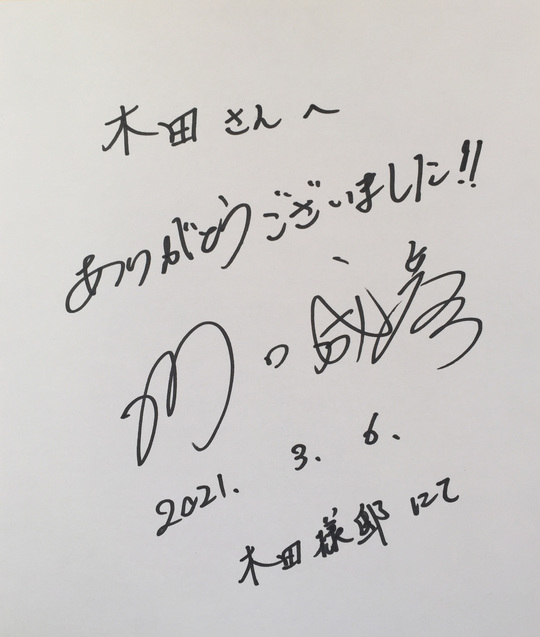 木田さんへ
ありがとうございました!!
2021. 3. 6.
木田様邸にて